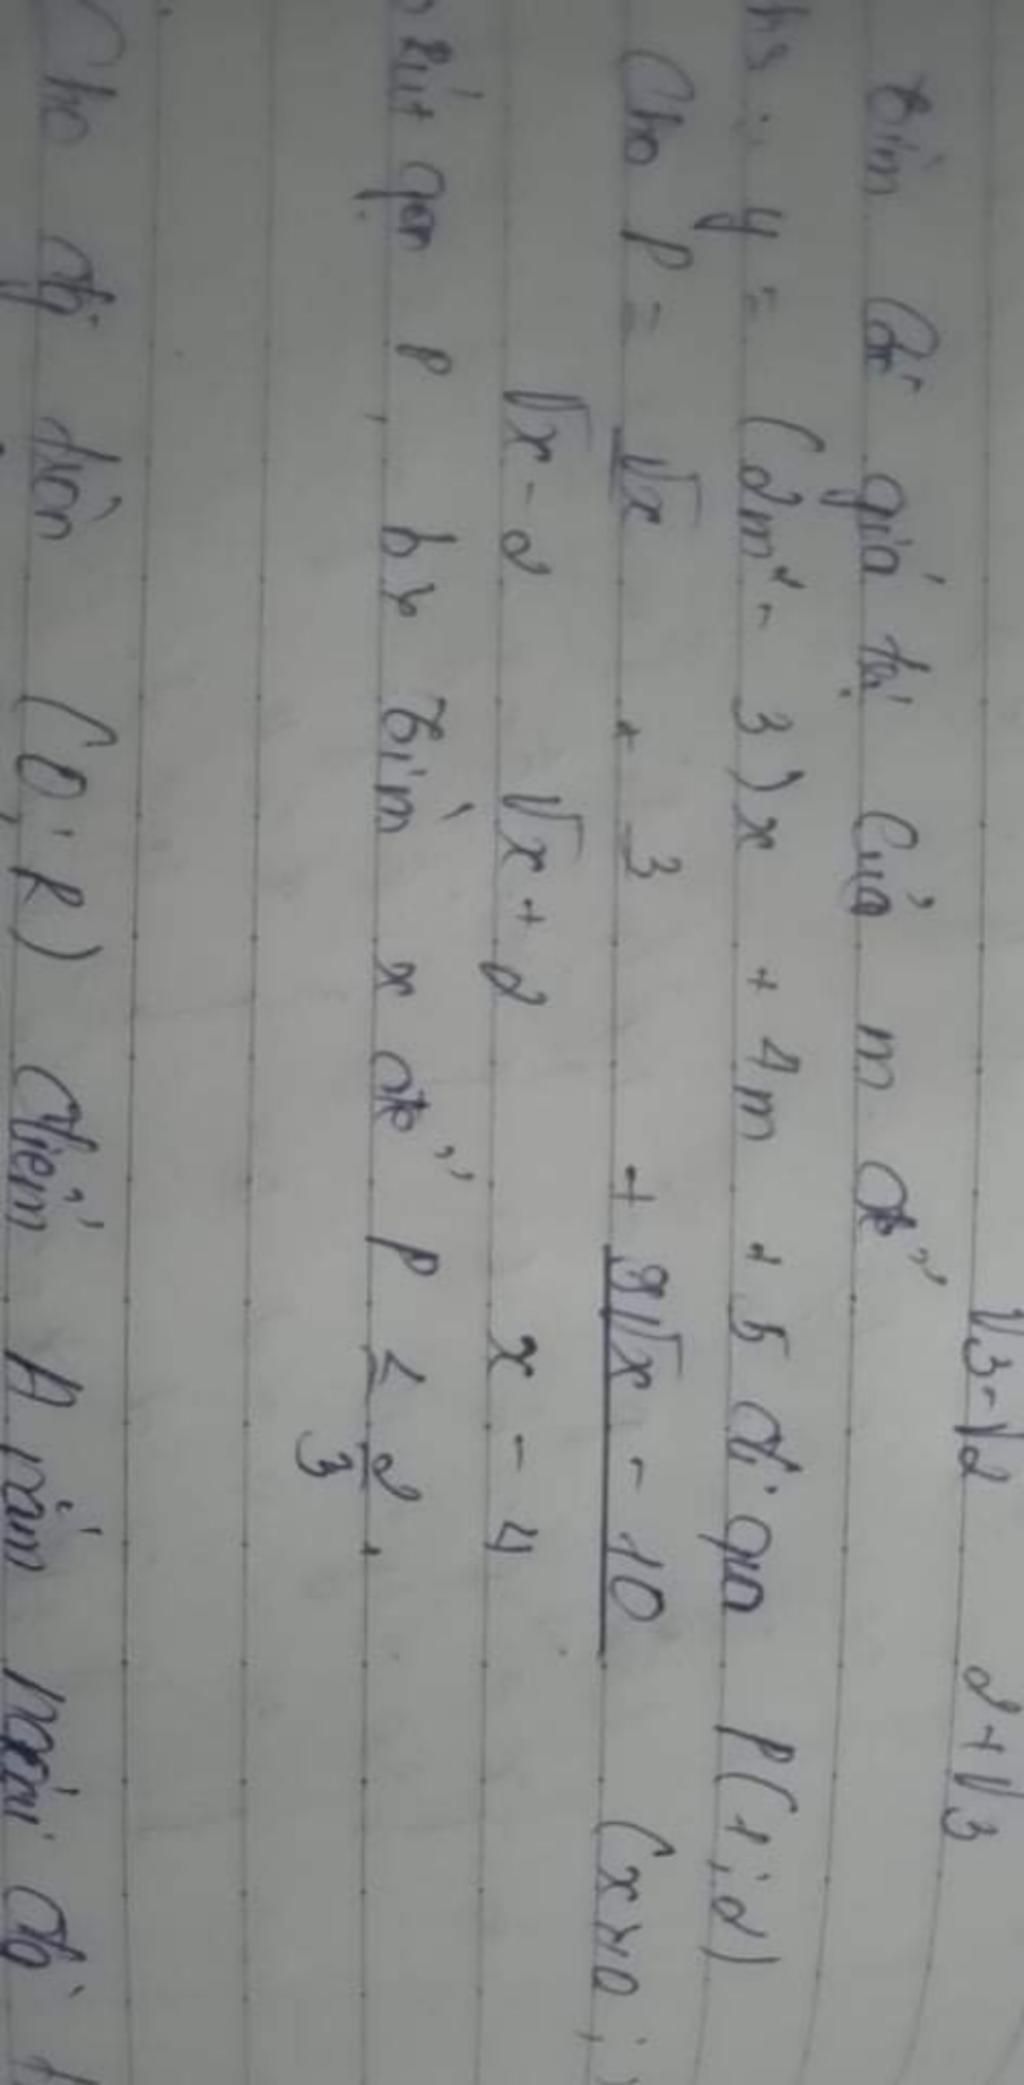 √3-√2 2+√3
Tìm các giá trị của m để
hs : y = (2m² - 3)x + 4m + 5 đi qua P(1;2)
Cho P = √x + 3 + 9√x - 10 (x≥0;
√x-2 √x+2 x-4
Rút gọn P, b> Tìm x để P ≤ 2
3
Cho đg tròn (O;R) điểm A nằm ngoài đg